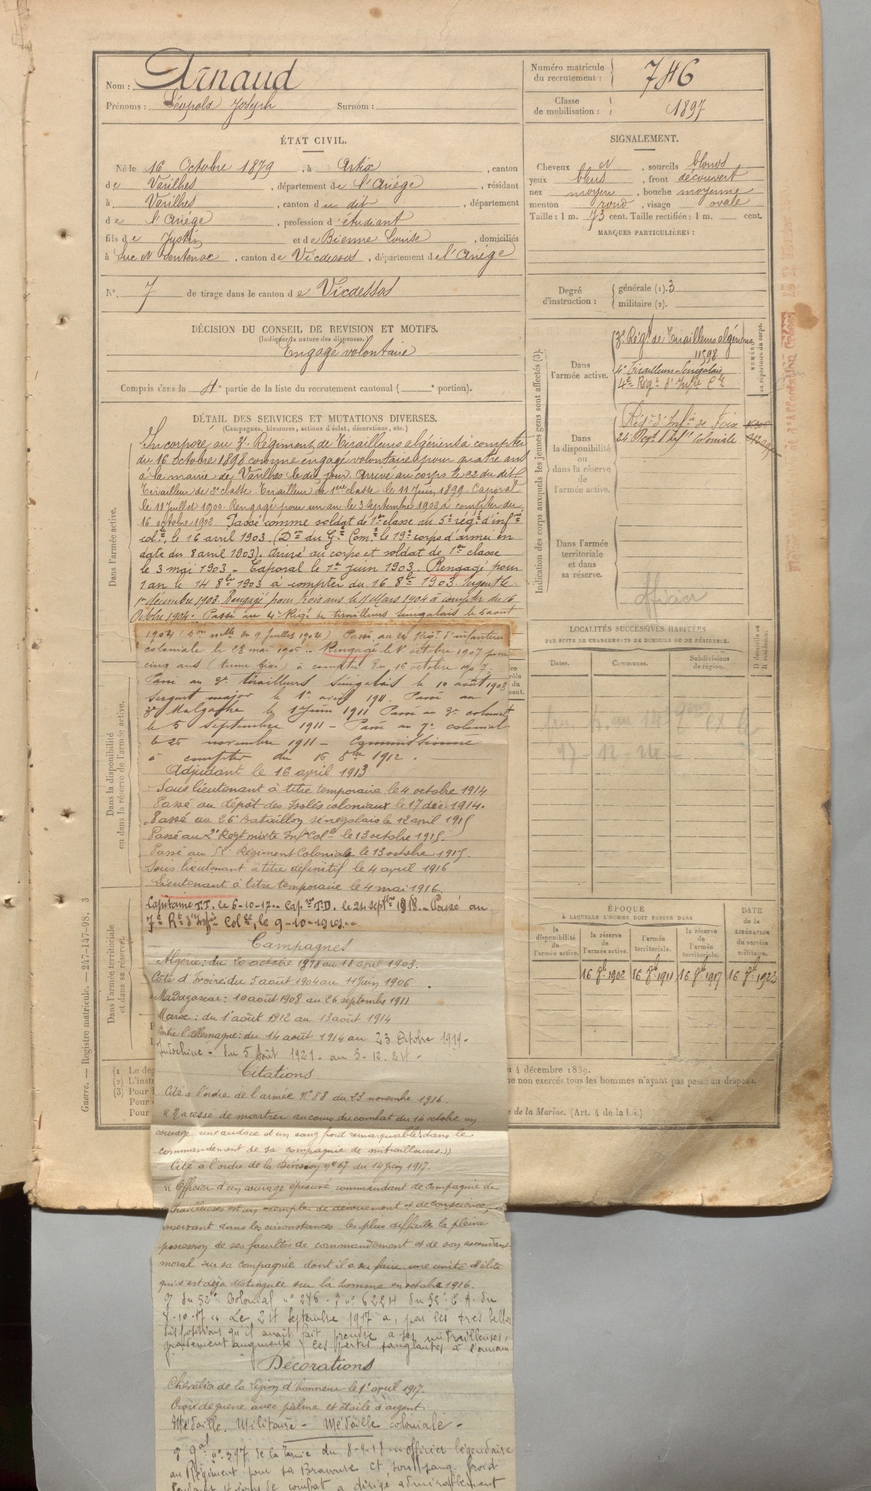 Nom : Arnaud
Prénoms : Léopold Joseph Surnom :
Numéro matricule du recrutement : 746
Classe de mobilisation : 1897
ÉTAT CIVIL.
Né le 16 Octobre 1879, à Artix, canton
de Varilhes, département de l'Ariège, résidant
à Varilhes, canton du dit, département
de l'Ariège, profession d'étudiant
fils de Justin et de Bienne Louise, domiciliés
à Suc et Sentenac, canton de Vicdessos, département de l'Ariège
N° 7 de tirage dans le canton de Vicdessos
SIGNALEMENT.
Cheveux et, sourcils blonds
yeux bleus, front découvert
nez moyen, bouche moyenne
menton rond, visage ovale
Taille : 1 m. 73 cent. Taille rectifiée : 1 m. cent.
MARQUES PARTICULIÈRES :
Degré d'instruction : générale (1). 3
militaire (2).
DÉCISION DU CONSEIL DE REVISION ET MOTIFS.
(Indiquer la nature des dispenses.)
Engagé volontaire
Compris dans la 4e partie de la liste du recrutement cantonal ( portion).
Indication des corps auxquels les jeunes gens sont affectés (3).
Dans l'armée active.
3e Régt de Tirailleurs algériens
11598
4e Tirailleurs Sénégalais
Dans la disponibilité ou dans la réserve de l'armée active.
Régt d'Infie de Foix
24e Regt d'Infie Coloniale
Dans l'armée territoriale et dans sa réserve.
officier
DÉTAIL DES SERVICES ET MUTATIONS DIVERSES.
(Campagnes, blessures, actions d'éclat, décorations, etc.)
Dans l'armée active.
Incorporé au 3e Régiment de Tirailleurs algériens à compter
du 16 octobre 1898 comme engagé volontaire pour quatre ans
à la mairie de Varilhes le dit jour. Arrivé au corps le 22 du dit.
Tirailleur de 2e classe. Tirailleur de 1ère classe le 11 Juin 1899. Caporal
le 11 Juillet 1900. Rengagé pour un an le 3 septembre 1902 à compter du
16 octobre 1902. Passé comme soldat de 1e classe au 5e régt d'infie
cole, le 16 avril 1903. (Don du Gl Comt le 19e corps d'armée en
date du 8 avril 1903). Arrivé au corps et soldat de 1e classe
le 3 mai 1903 - Caporal le 1er juin 1903. Rengagé pour
1 an le 14 8bre 1903 à compter du 16 8bre 1903. Sergent le
1er décembre 1903. Rengagé pour trois ans le 1 Mars 1904 à compter du 16
Octobre 1904. Passé au 4e Régt de tirailleurs sénégalais le 5 août
1904 Passé au 24 Régt d'infanterie
coloniale le 28 mai 1906. Rengagé le 8 octobre 1907 pour
cinq ans à compter du 16 octobre 1907.
Passé au 3e tirailleurs sénégalais le 10 août 1908
Sergent major le 1er avril 1911. Passé au
3e Malgache le 1 Juin 1911 Passé au 3e colonial
le 5 septembre 1911 - Passé au 7e colonial
le 25 novembre 1911 - Commissionné
à compter du 16 8bre 1912.
Adjudant le 16 avril 1913
Sous lieutenant à titre temporaire le 4 octobre 1914
Passé au dépôt des Isolés coloniaux le 17 déc 1914.
Passé au 26e Bataillon sénégalais le 12 avril 1915
Passé au 2e Regt mixte Infie Cole le 13 octobre 1915.
Passé au 52e Régiment Coloniale le 13 octobre 1915.
Sous lieutenant à titre définitif le 4 avril 1916
Lieutenant à titre temporaire le 4 mai 1916.
Capitaine T.T. le 6-10-17. Cap. T.D. le 24 septbre 1918. Passé au
7e Rt d'Infie Cole, le 9-10-1919.
Campagnes
Algérie : du 20 octobre 1898 au 18 avril 1903.
Côte d'Ivoire du 5 août 1904 au 11 juin 1906.
Madagascar : 10 août 1908 au 26 septembre 1911
Maroc : du 1 août 1912 au 13 août 1914
Contre l'allemagne : du 14 août 1914 au 23 Octobre 1919.
Indochine - du 5 Août 1921 - au 3-12-24 -
Citations
Cité à l'ordre de l'armée N° 88 du 23 novembre 1916.
"N'a cessé de montrer au cours du combat du 14 octobre un
courage, une audace et un sang froid remarquables dans le
commandement de sa compagnie de mitrailleuses."
Cité à l'ordre de la Division n° 67 du 14 Juin 1917.
"Officier d'un courage éprouvé commandant de Compagnie de
mitrailleuses est un exemple de dévouement et de conscience,
conservant dans les circonstances les plus difficiles la pleine
possession de ses facultés de commandement et de son ascendant
moral sur sa compagnie dont il a su faire une unité d'élite
qui s'est déjà distinguée sur la Somme en octobre 1916.
du 52e Colonial n° 276
8-10-17 Le 24 Septembre 1917 a, par les très belles
dispositions qu'il avait fait prendre à ses mitrailleuses,
puissamment augmenté les pertes sanglantes à l'ennemi
Décorations
Chevalier de la légion d'honneur le 1e avril 1917.
Croix de guerre avec palme et étoile d'argent.
Médaille Militaire - Médaille coloniale -
n° 397 officier légendaire
au Régiment pour sa Bravoure et son sang froid
combat a dirigé admirablement
Dans la disponibilité ou dans la réserve de l'armée active.
Dans l'armée territoriale et dans sa réserve.
LOCALITÉS SUCCESSIVES HABITÉES
PAR SUITE DE CHANGEMENTS DE DOMICILE OU DE RÉSIDENCE.
Dates. Communes. Subdivisions de région.
ÉPOQUE
À LAQUELLE L'HOMME DOIT PASSER DANS
la disponibilité de l'armée active. la réserve de l'armée active. l'armée territoriale. la réserve de l'armée territoriale.
DATE de la LIBÉRATION du service militaire.
16 8bre 1902 16 8bre 1911 16 8bre 1917 16 8bre 1923
Guerre. — Registre matricule. — 247-147-98. 3